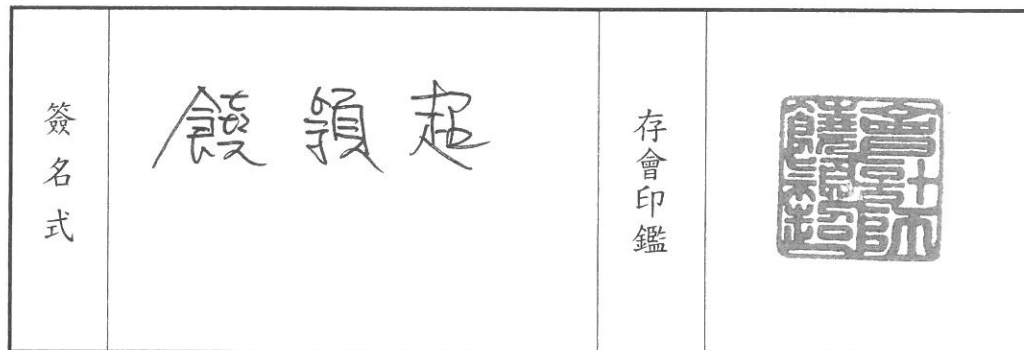 簽名式
饒 超
存會印鑑
會計師
饒 超